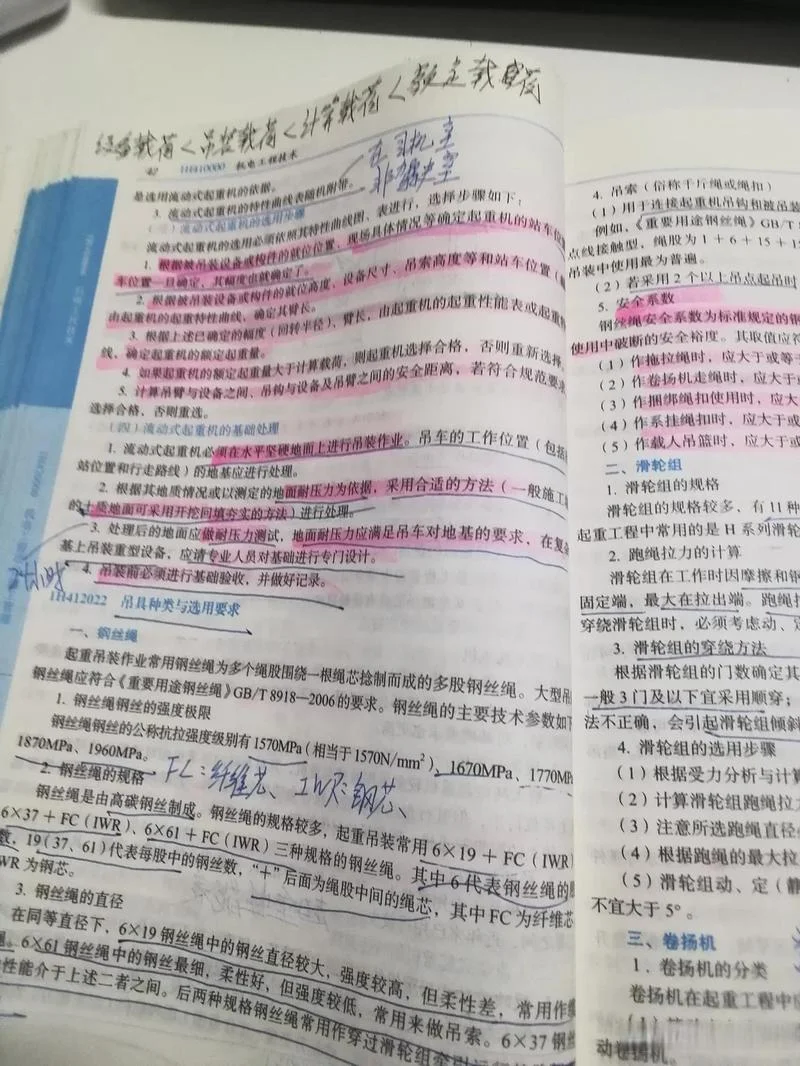 吊装载荷<计算载荷<额定载荷
42 1H410000 机电工程技术
是选用流动式起重机的依据。
3. 流动式起重机的特性曲线表随机附带。
(三)流动式起重机的选用步骤
流动式起重机的选用必须依照其特性曲线图、表进行,选择步骤如下:
1. 根据被吊装设备或构件的就位位置、现场具体情况等确定起重机的站车位
车位置一旦确定,其幅度也就确定了。
2. 根据被吊装设备或构件的就位高度、设备尺寸、吊索高度等和站车位置(
由起重机的起重特性曲线,确定其臂长。
3. 根据上述已确定的幅度(回转半径)、臂长,由起重机的起重性能表或起重
线,确定起重机的额定起重量。
4. 如果起重机的额定起重量大于计算载荷,则起重机选择合格,否则重新选择。
5. 计算吊臂与设备之间、吊钩与设备及吊臂之间的安全距离,若符合规范要求
选择合格,否则重选。
(四)流动式起重机的基础处理
1. 流动式起重机必须在水平坚硬地面上进行吊装作业。吊车的工作位置(包括
站位置和行走路线)的地基应进行处理。
2. 根据其地质情况或以测定的地面耐压力为依据,采用合适的方法(一般施工
的土质地面可采用开挖回填夯实的方法)进行处理。
3. 处理后的地面应做耐压力测试,地面耐压力应满足吊车对地基的要求,在复杂
基上吊装重型设备,应请专业人员对基础进行专门设计。
4. 吊装前必须进行基础验收,并做好记录。
1H412022 吊具种类与选用要求
一、钢丝绳
起重吊装作业常用钢丝绳为多个绳股围绕一根绳芯捻制而成的多股钢丝绳。大型吊
钢丝绳应符合《重要用途钢丝绳》GB/T 8918—2006的要求。钢丝绳的主要技术参数如下
1. 钢丝绳钢丝的强度极限
钢丝绳钢丝的公称抗拉强度级别有1570MPa(相当于1570N/mm²)、1670MPa、1770MP
1870MPa、1960MPa。
2. 钢丝绳的规格
FC:纤维芯、IWR:钢芯
钢丝绳是由高碳钢丝制成。钢丝绳的规格较多,起重吊装常用6×19+FC(IWR)
6×37+FC(IWR)、6×61+FC(IWR)三种规格的钢丝绳。其中6代表钢丝绳的
数,19(37、61)代表每股中的钢丝数,“+”后面为绳股中间的绳芯,其中FC为纤维芯
WR为钢芯。
3. 钢丝绳的直径
在同等直径下,6×19钢丝绳中的钢丝直径较大,强度较高,但柔性差,常用作缆
绳。6×61钢丝绳中的钢丝最细,柔性好,但强度较低,常用来做吊索。6×37钢丝
性能介于上述二者之间。后两种规格钢丝绳常用作穿过滑轮组牵引运行的
4. 吊索(俗称千斤绳或绳扣)
(1)用于连接起重机吊钩和被吊装
例如,《重要用途钢丝绳》GB/T
点线接触型,绳股为1+6+15+15
吊装中使用最为普遍。
(2)若采用2个以上吊点起吊时
5. 安全系数
钢丝绳安全系数为标准规定的钢
使用中破断的安全裕度。其取值应符
(1)作拖拉绳时,应大于或等于
(2)作卷扬机走绳时,应大于或
(3)作捆绑绳扣使用时,应大
(4)作系挂绳扣时,应大于或
(5)作载人吊篮时,应大于或
二、滑轮组
1. 滑轮组的规格
滑轮组的规格较多,有11种
起重工程中常用的是H系列滑轮
2. 跑绳拉力的计算
滑轮组在工作时因摩擦和钢
固定端,最大在拉出端。跑绳拉
穿绕滑轮组时,必须考虑动、定
3. 滑轮组的穿绕方法
根据滑轮组的门数确定其
一般3门及以下宜采用顺穿;
法不正确,会引起滑轮组倾斜
4. 滑轮组的选用步骤
(1)根据受力分析与计算
(2)计算滑轮组跑绳拉力
(3)注意所选跑绳直径
(4)根据跑绳的最大拉
(5)滑轮组动、定(静
不宜大于5°。
三、卷扬机
1. 卷扬机的分类
卷扬机在起重工程中应
动卷扬机。